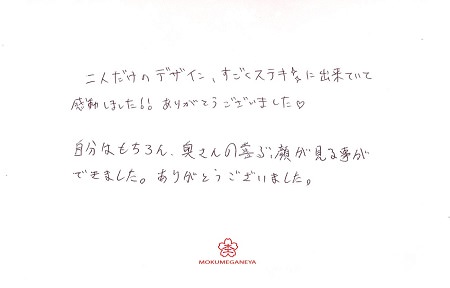 二人だけのデザイン、すごくステキに出来ていて
感動しました!! ありがとうございました♡
自分はもちろん、奥さんの喜ぶ顔が見る事が
できました。ありがとうございました。
MOKUMEGANEYA